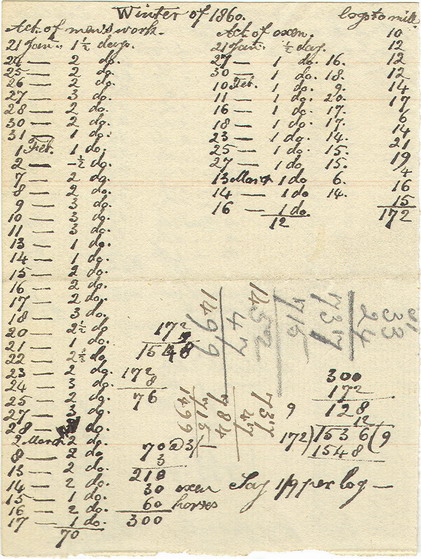 Winter of 1860.
Act. of men's work.
21 Jan. 1½ days.
24 — 2 do.
25 — 2 do.
26 — 2 do.
27 — 3 do.
28 — 2 do.
30 — 2 do.
31 — 1 do.
1 Feb. 1 do.
2 — ½ do.
7 — 2 do.
8 — 2 do.
9 — 3 do.
10 — 3 do.
11 — 3 do.
13 — 1 do.
14 — 1 do.
15 — 2 do.
16 — 2 do.
17 — 2 do.
18 — 3 do.
20 — 2½ do.
21 — 1 do.
22 — 2½ do.
23 — 2 do.
24 — 3 do.
25 — 2 do.
27 — 3 do.
28 — 2 do.
2 March 2 do.
8 — 2 do.
13 — 2 do.
14 — 2 do.
15 — 1 do.
16 — 2 do.
17 — 1 do.
70
Act. of oxen.
21 Jan. ½ day.
27 — 1 do. 16.
30 — 1 do. 18.
10 Feb. 1 do. 9.
11 — 1 do. 20.
16 — 1 do. 17.
18 — 1 do. 17.
23 — 1 do. 14.
25 — 1 do. 15.
27 — 1 do. 15.
13 March 1 do 6.
14 — 1 do 14.
16 — 1 do.
12
logs to mill.
10
12
12
14
17
6
14
21
19
4
16
15
172
172
9
1548
172
8
76
70 @ 3/
3
210
30 oxen
60 horses
300
1452
47
1499
737
715
33
24
737
47
784
715
1499
300
172
128
12
9
172)1536(9
1548
Say 1/9 per log —